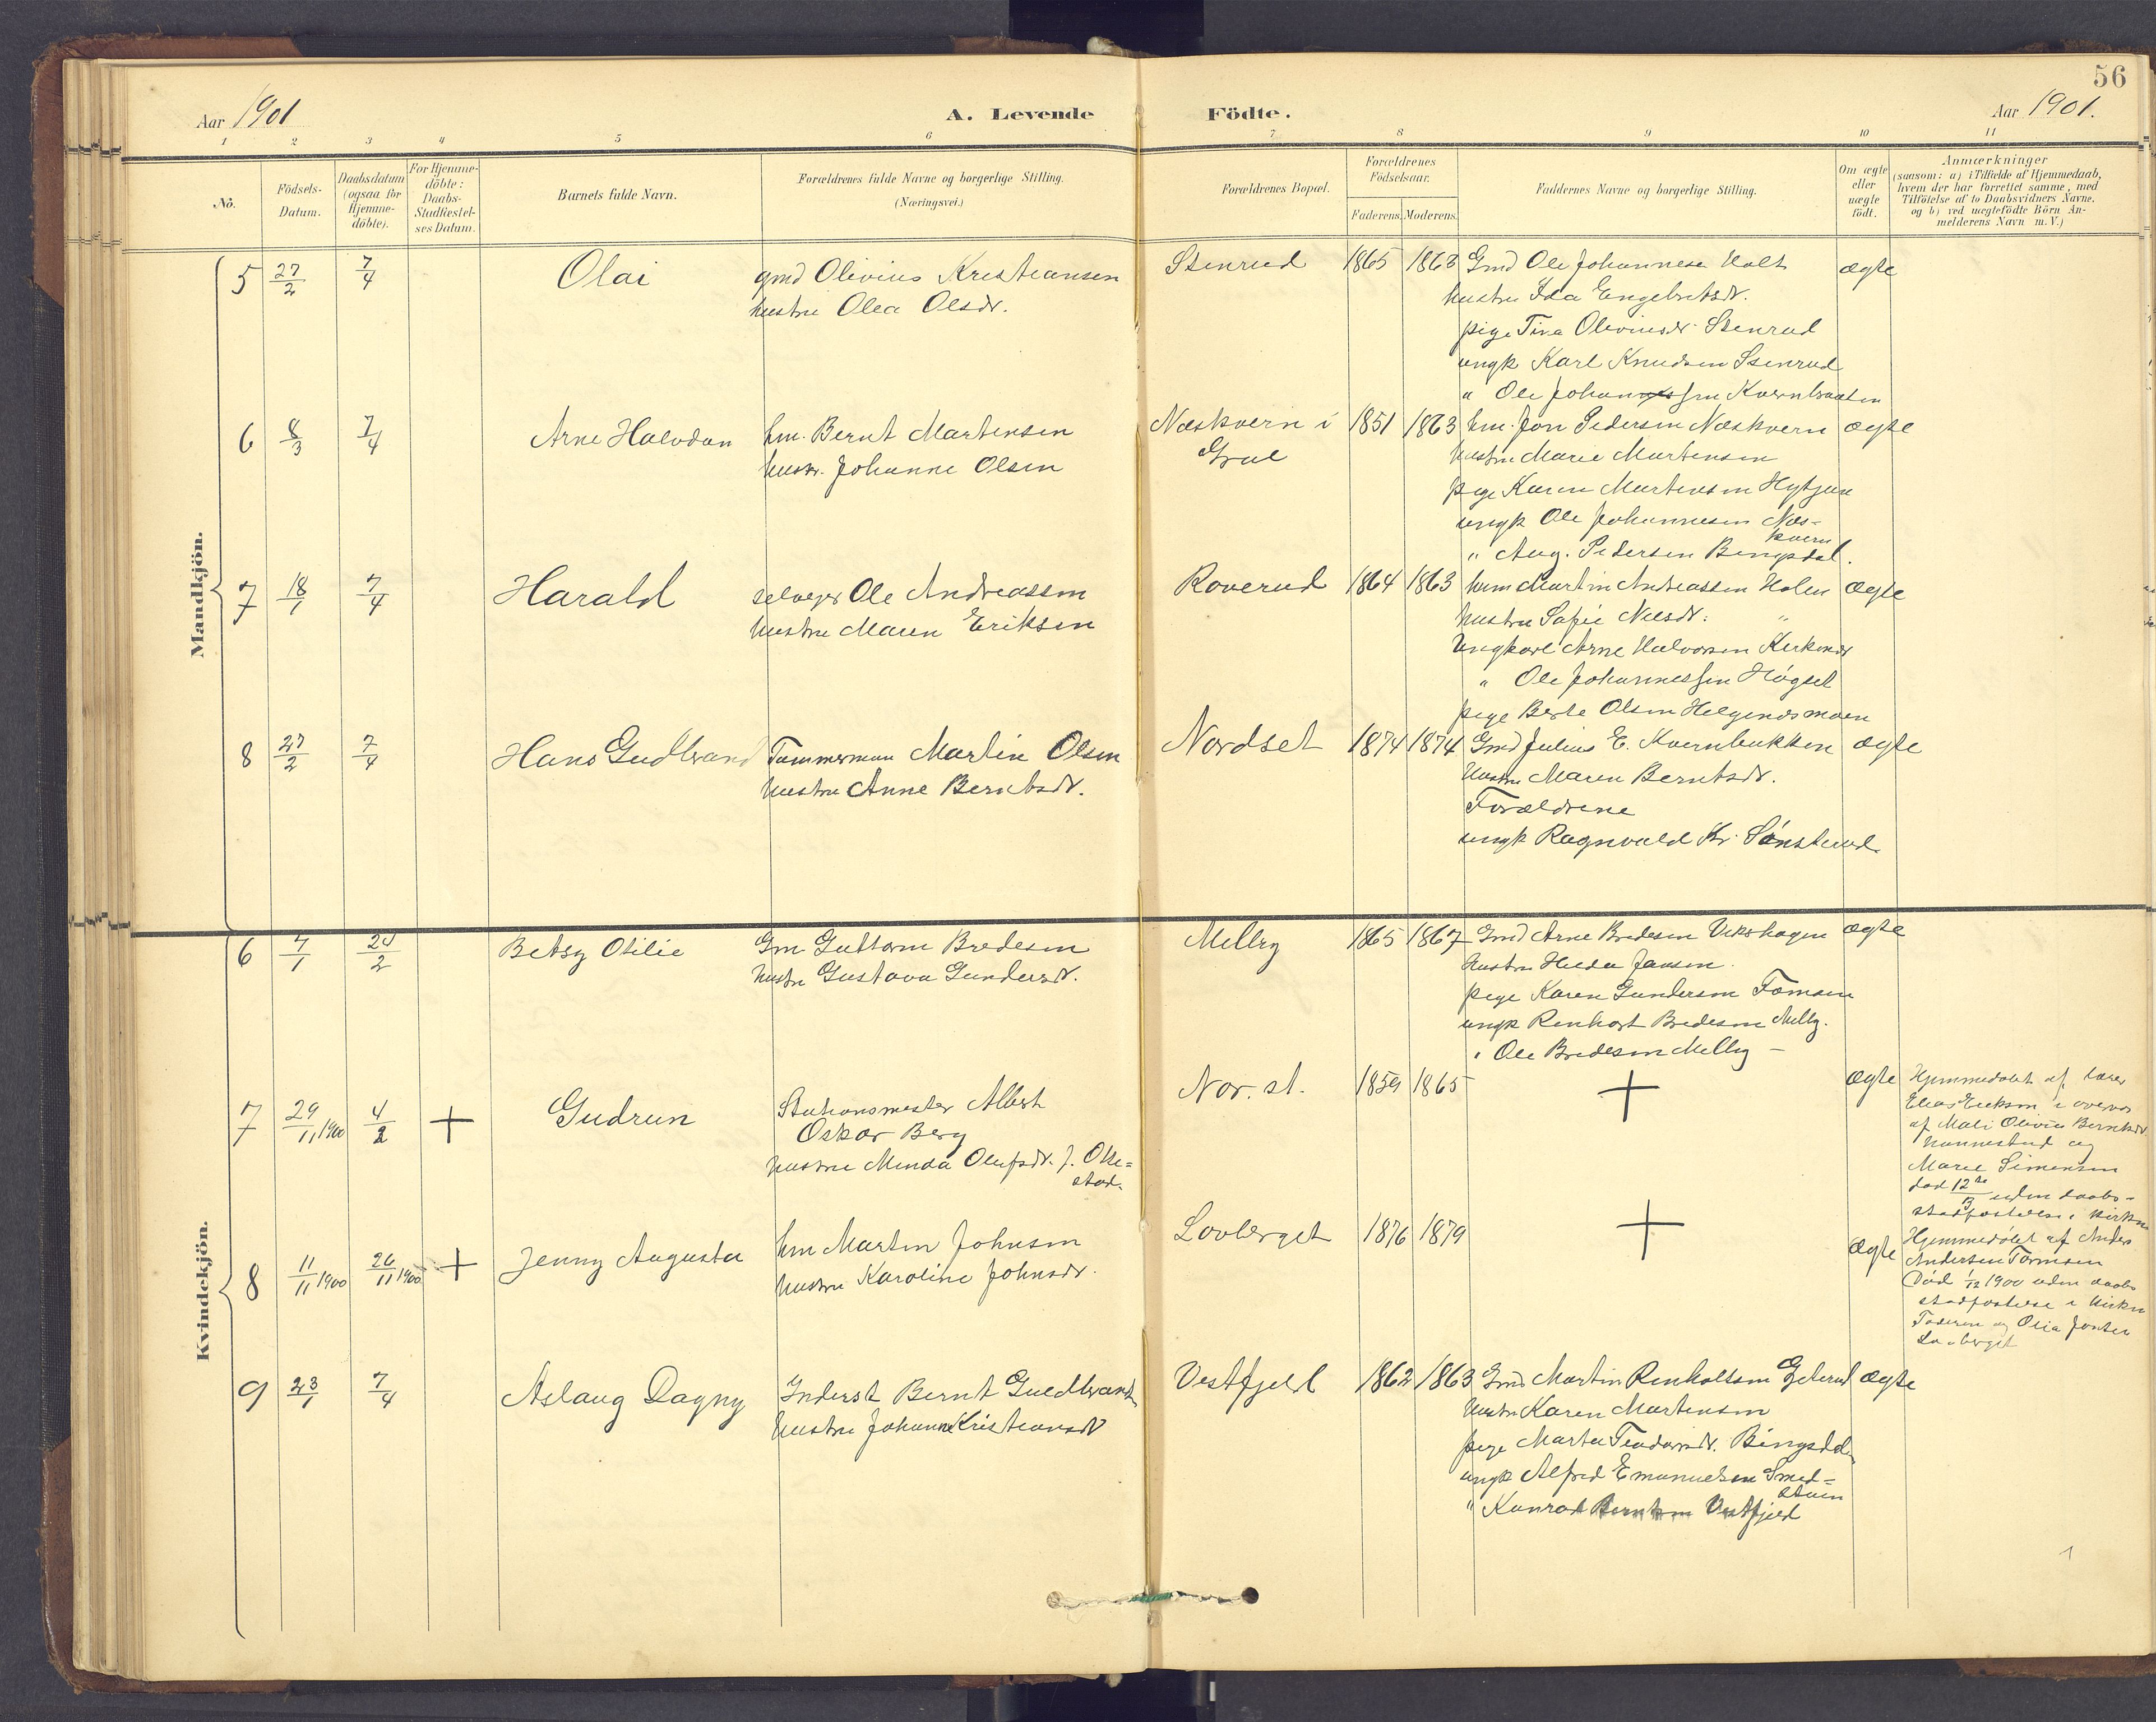 56
Aar 1901
A. Levende
Födte.
Aar 1901.
1 2 3 4 5 6 7 8 9 10 11
No.
Födsels-
Datum.
Daabsdatum
(ogsaa for
Hjemme-
döbte).
For Hjemme-
döbte:
Daabs-
Stadfæstel-
ses Datum.
Barnets fulde Navn.
Forældrenes fulde Navne og borgerlige Stilling.
(Næringsvei.)
Forældrenes Bopæl.
Forældrenes
Födselsaar.
Faderens. Moderens.
Faddernes Navne og borgerlige Stilling.
Om ægte
eller
uægte
födt.
Anmærkninger
(saasom: a) i Tilfælde af Hjemmedaab,
hvem der har forrettet samme, med
Tilföielse af to Daabsvidners Navne.
og b) ved uægtefödte Börn An-
melderens Navn m. V.)
Mandkjön.
5 27/2 7/4 Olai
gmd Olivius Kristiansen
hustru Olea Olsdr.
Stenrud 1865 1868
Gmd Ole Johannesen Holt
hustru Ida Engebretsdr.
pige Tina Oliviusdr Stenrud
ungk Karl Knudsen Stenrud
" Ole Johannessen Kvernbraaten
ægte
6 8/3 7/4 Arne Halvdan
hm. Bernt Martensen
hustr. Johanne Olsen
Næskvern i
Grue
1851 1863
hm. Jon Pedersen Næskvern
hustru Marie Martensen
pige Karen Martensen Hytjan
ungk Ole Johannesen Næs-
kvern
" Aug. Pedersen Bingsdal.
ægte
7 18/1 7/4 Harald
selveier Ole Andreassen
hustru Maren Eriksen
Roverud 1864 1863
husm Martin Andreassen Holen
hustru Sofie Nilsdr. "
Ungkarl Arne Halvorsen
" Ole Johannessen Høgset
pige Berte Olsen Helgendsmoen
ægte
8 27/2 7/4 Hans Gudbrand
Tømmerman Martin Olsen
hustru Anne Berntsdr.
Nordset 1874 1874
Gmd Julius E. Kvernbukken
Hustru Maren Berntsdr.
Forældrene
ungk Ragnvald Kr. Sønsterud.
ægte
Kvindekjön.
6 7/1 24/2 Betsy Otilie
Gm Guttorm Bredesen
hustru Gustava Gundersdr.
Melby 1865 1867
Gmd Arne Bredesen Vikshagen
hustru Hilda Jansen.
pige Karen Gundersen Tomsen
ungk Renhart Bredesen Melby.
" Ole Bredesen Melby –
ægte
7 29/11 1900 4/2 + Gudrun
Stationsmester Albert
Oskar Berg
hustru Minda Olufsdr. f. Olle=
stad.
Nor. st. 1859 1865
+
ægte
Hjemmedøbt af lærer
Elias Erikson i overvær
af Mali Olivie Berntsdr.
og
Marie Simensen
død 12te uden daabs-
stadfæstelse i kirken
8 11/11 1900 26/11 1900 + Jenny Augusta
hm Martin Johnsen
hustru Karoline Johnsdr.
Lovberget 1876 1879
+
ægte
Hjemmedøbt af Anders
Andersen Tomsen
Død 1/12 1900 uden daabs
stadfæstelse i kirken
Faderen og Olia
Lovberget
9 23/1 7/4 Aslaug Dagny
Inderst Bernt Guldbrands.
hustru Johanne Kristiansdr
Vestfjeld 1862 1863
Gmd Martin Renholtsen Gjeterud
hustru Karen Martensen
pige Marta Teodorsdr. Bingsdal
ungk Alfred Emanuelsen Smed=
stuen
" Konrad Berntsen Vestfjeld
ægte